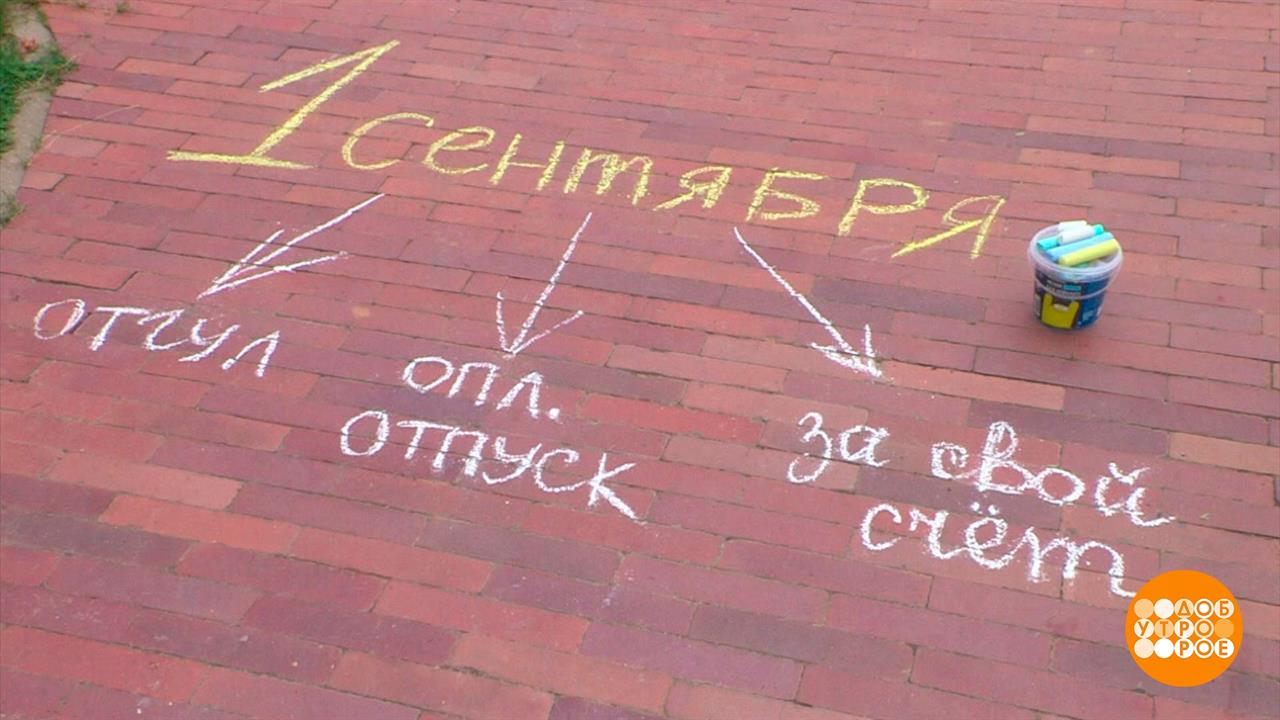 1 сентября
отгул
опл.
отпуск
за свой
счёт
ДОБ
УТРО
РОЕ